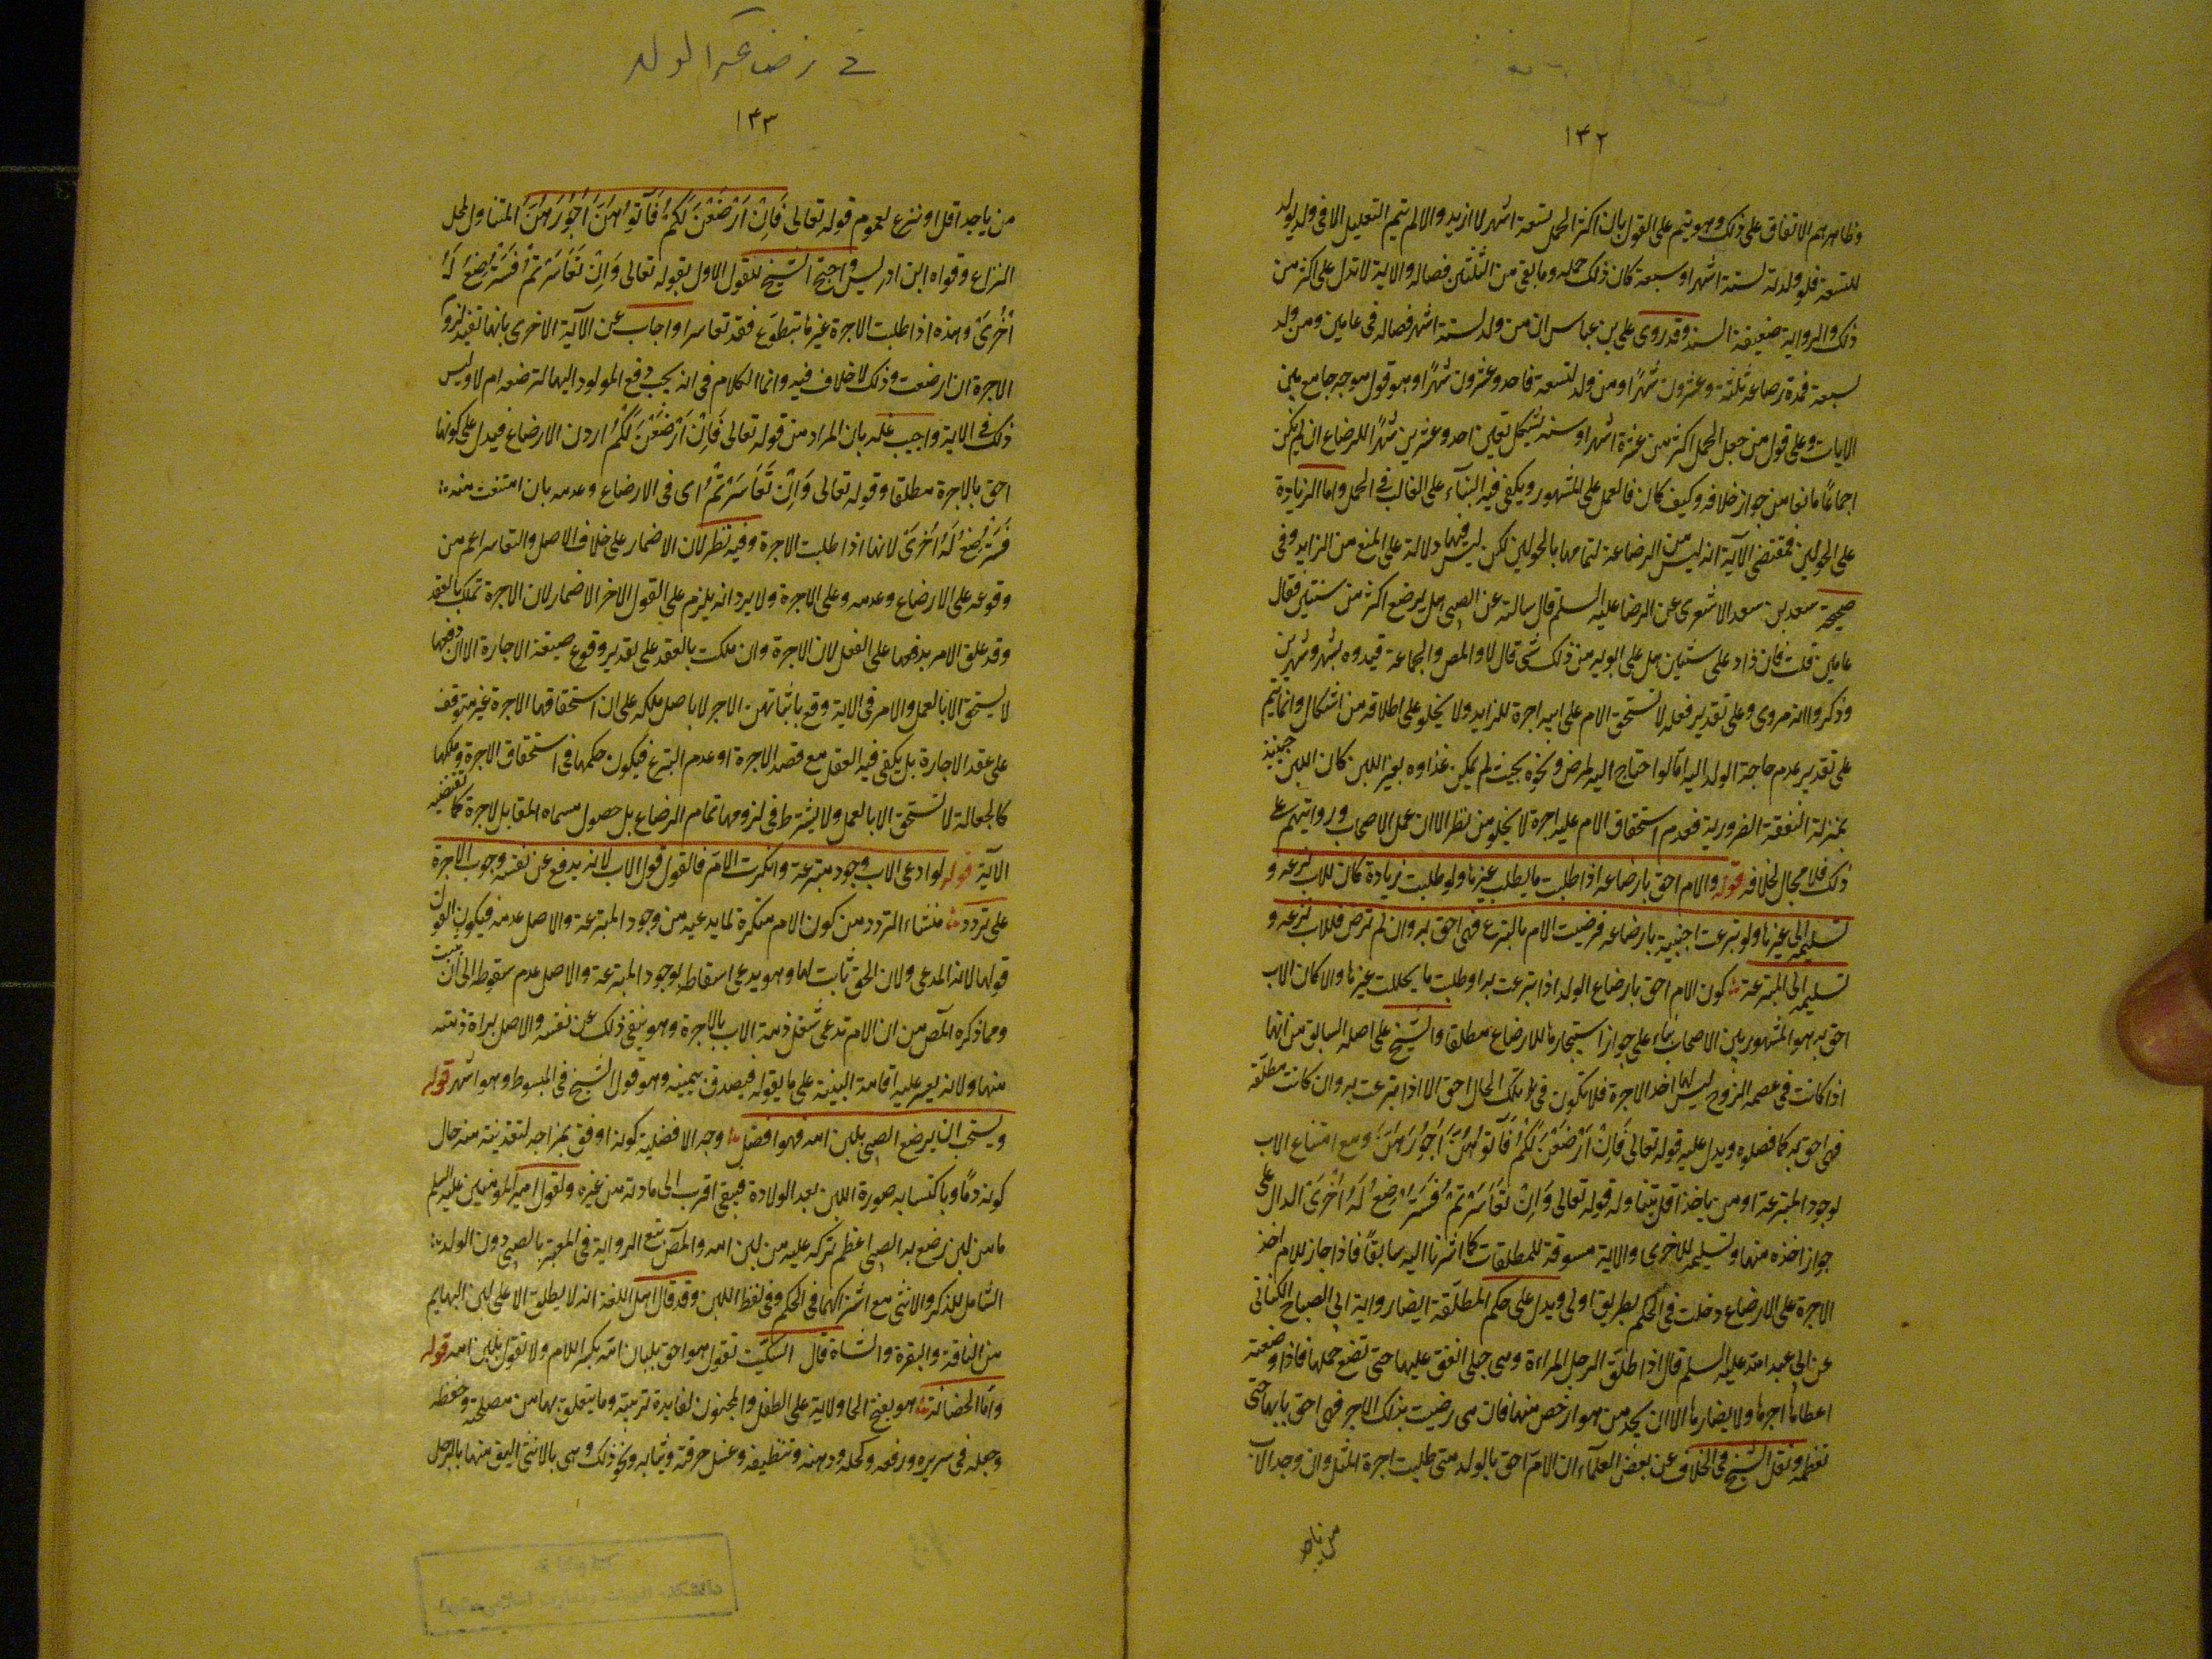 ١٤٢
وظاهرهم الاتفاق على ذلك وهو يتم على القول بان اكثر الحمل تسعة اشهر لا ازيد والا لم يتم التعليل الا فى ولد يولد
للتسعة فلو ولدته لستة اشهر او سبعة كان ذلك حمله وما بقى من الثلثين فصاله والاية لا تدل على اكثر من
ذلك والرواية ضعيفة السند وقد روى على بن عباس ان من ولد لستة اشهر فصاله فى عامين ومن ولد
لسبعة فمدة رضاعه ثلثة وعشرون شهرًا ومن ولد لتسعة فاحد وعشرون شهرًا وهو قول موجه جامع بين
الايات وعلى قول من جعل الحمل اكثر من عشرة اشهر او سنة يشكل تعين احد وعشرين شهرًا للرضاع ان لم يكن
اجماعًا مانعا من جواز خلافه وكيف كان فالعمل على المشهور ويكفى فيه البناء على الغالب فى الحمل واما الزيادة
على الحولين فمقتضى الآية انه ليس من الرضاعة لتمامها بالحولين لكن ليس فيها دلالة على المنع من الزايد وفى
صحيحة سعد بن سعد الاشعرى عن الرضا عليه السلم قال سالته عن الصبى هل يرضع اكثر من سنتين فقال
عامين قلت فان زاد على سنتين هل على ابويه من ذلك شى قال لا والمص والجماعة قيدوه بشهر وشهرين
وذكروا انه مروى وعلى تقدير فعله لا تستحق الام على ابيه اجرة للزايد ولا يخلو على اطلاقه من اشكال وانما يتم
على تقدير عدم حاجة الولد اليه اما لو احتاج اليه لمرض ونحوه بحيث لم يمكن غذاوه بغير اللبن كان اللبن حينئذ
بمنزلة النفقة الضرورية فعدم استحقاق الام عليه اجرة لا يخلو من نظر الا ان عمل الاصحاب وروايتهم على
ذلك فلا مجال لخلافه قوله والام احق بارضاعه اذا طلبت ما يطلب غيرها ولو طلبت زيادة كان للاب نزعه و
تسليمه الى غيرها ولو تبرعت اجنبية بارضاعه فرضيت الام بالتبرع فهى احق به وان لم ترض فللاب نزعه و
تسليمه الى المتبرعة كون الام احق بارضاع الولد اذا تبرعت به او طلبت ما يطلب غيرها والا كان الاب
احق به هو المشهور بين الاصحاب بناء على جواز استيجارها للارضاع مطلقا والشيخ على اصله السابق من انها
اذا كانت فى عصمة الزوج ليس لها اخذ الاجرة فلا تكون فى تلك الحال احق الا اذا تبرعت به وان كانت مطلقة
فهى احق به كما فصلوه ويدل عليه قوله تعالى فَاِنْ اَرْضَعْنَ لَكُمْ فَآتُوهُنَّ اُجُورَهُنَّ ومع امتناع الاب
لوجود المتبرعة او من ياخذ اقل يتناوله قوله تعالى وَاِنْ تَعَاسَرْتُمْ فَسَتُرْضِعُ لَهُ اُخْرَى الدال على
جواز اخذه منها وتسليمه للاخرى والاية مسوقة للمطلقات كما اشرنا اليه سابقًا فاذا جاز للام اخذ
الاجرة على الارضاع دخلت فى الحكم بطريق اولى ويدل على حكم المطلقة ايضا رواية ابى الصباح الكنانى
عن ابى عبد الله عليه السلم قال اذا طلق الرجل المراة وهى حبلى انفق عليها حتى تضع حملها فاذا وضعته
اعطاها اجرها ولا يضارها الا ان يجد من هو ارخص منها فان هى رضيت بذلك الاجر فهى احق بابنها حتى
تفطمه ونقل الشيخ فى الخلاف عن بعض العلماء ان الام احق بالولد متى طلبت اجرة المثل وان وجد الاب
من ياخذ
فى رضاعة الولد
١٤٣
من ياخذ اقل او تبرع لعموم قوله تعالى فَاِنْ اَرْضَعْنَ لَكُمْ فَآتُوهُنَّ اُجُورَهُنَّ المتناول لمحل
النزاع وقواه ابن ادريس واحتج الشيخ للقول الاول بقوله تعالى وَاِنْ تَعَاسَرْتُمْ فَسَتُرْضِعُ لَهُ
اُخْرَى وهذه اذا طلبت الاجرة غيرها تتطوع فقد تعاسرا واجاب عن الآية الاخرى بانها تفيد لزوم
الاجرة ان ارضعت وذلك لا خلاف فيه وانما الكلام فى انه يجب دفع المولود اليها لترضعه ام لا وليس
ذلك فى الاية واجيب عنه بان المراد من قوله تعالى فَاِنْ اَرْضَعْنَ لَكُمْ اردن الارضاع فيدل على كونها
احق بالاجرة مطلقا وقوله تعالى وَاِنْ تَعَاسَرْتُمْ اى فى الارضاع وعدمه بان امتنعت منه
فَسَتُرْضِعُ لَهُ اُخْرَى لانها اذا طلبت الاجرة وفيه نظر لان الاضمار على خلاف الاصل والتعاسر اعم من
وقوعه على الارضاع وعدمه وعلى الاجرة ولا يرد انه يلزم على القول الاخر الاضمار لان الاجرة تملك بالعقد
وقد علق الامر بدفعها على الفعل لان الاجرة وان ملكت بالعقد على تقدير وقوع صيغة الاجارة الا ان دفعها
لا يستحق الا بالعمل والامر فى الاية وقع باتيانهن الاجر لا باصل ملكه على ان استحقاقها الاجرة غير متوقف
على عقد الاجارة بل يكفى فيه الفعل مع قصد الاجرة او عدم التبرع فيكون حكمها فى استحقاق الاجرة وملكها
كالجعالة لا تستحق الا بالعمل ولا يشترط فى لزومها تمام الرضاع بل حصول مسماه المقابل لاجرة كما تقتضيه
الآية قوله لو ادعى الاب وجود متبرعة وانكرت الام فالقول قول الاب لانه يدفع عن نفسه وجوب الاجرة
على تردد منشاء التردد من كون الام منكرة لما يدعيه من وجود المتبرعة والاصل عدمه فيكون القول
قولها لانه المدعى ولان الحق ثابت لها وهو يدعى اسقاطه بوجود المتبرعة والاصل عدم سقوطه الى ان يثبت
ومما ذكره المص من ان الام تدعى شغل ذمة الاب بالاجرة وهو ينفى ذلك عن نفسه والاصل براة ذمته
منها ولانه يعسر عليه اقامة البينة على ما يقوله فيصدق بيمينه وهو قول الشيخ فى المبسوط وهو اشهر قوله
ويستحب ان يرضع الصبى بلبن امه فهو افضل وجه الافضلية كونه اوفق بمزاجه لتغذيته منه حال
كونه دمًا وباكتسابه صورة اللبن بعد الولادة فيبقى اقرب الى مادته من غيره ولقول امير المومنين عليه السلم
ما من لبن رضع به الصبى اعظم بركة عليه من لبن امه والمص تبع الرواية فى التعبير بالصبى دون الولد
الشامل للذكر والانثى مع اشتراكهما فى الحكم وفى لفظ اللبن وقد قال اهل اللغة انه لا يطلق الا على لبن البهايم
من الناقة والبقرة والشاة قال السكيت تقول هو احق بلبان امه بكسر اللام ولا تقول بلبن امه قوله
واما الحضانة هو بفتح الحا ولاية على الطفل والمجنون لفايدة تربيته وما يتعلق بها من مصلحته وحفظه
وجعله فى سريره ورفعه وكحله ودهنه وتنظيفه وغسل خرقه وثيابه ونحو ذلك وهى بالانثى اليق منها بالرجل